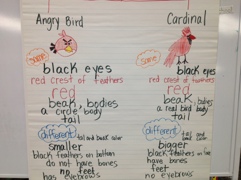 Angry Bird
same
black eyes
red crest of feathers
red
beak, bodies
a circle body
tail
different
tail and beak color
smaller
black feathers on bottom
do not have bones
no feet
has eyebrows
Cardinal
same
black eyes
red crest of feathers
red
beak, bodies
a real bird body
tail
different
tail and beak color
bigger
black feathers on
have bones
feet
no eyebrows